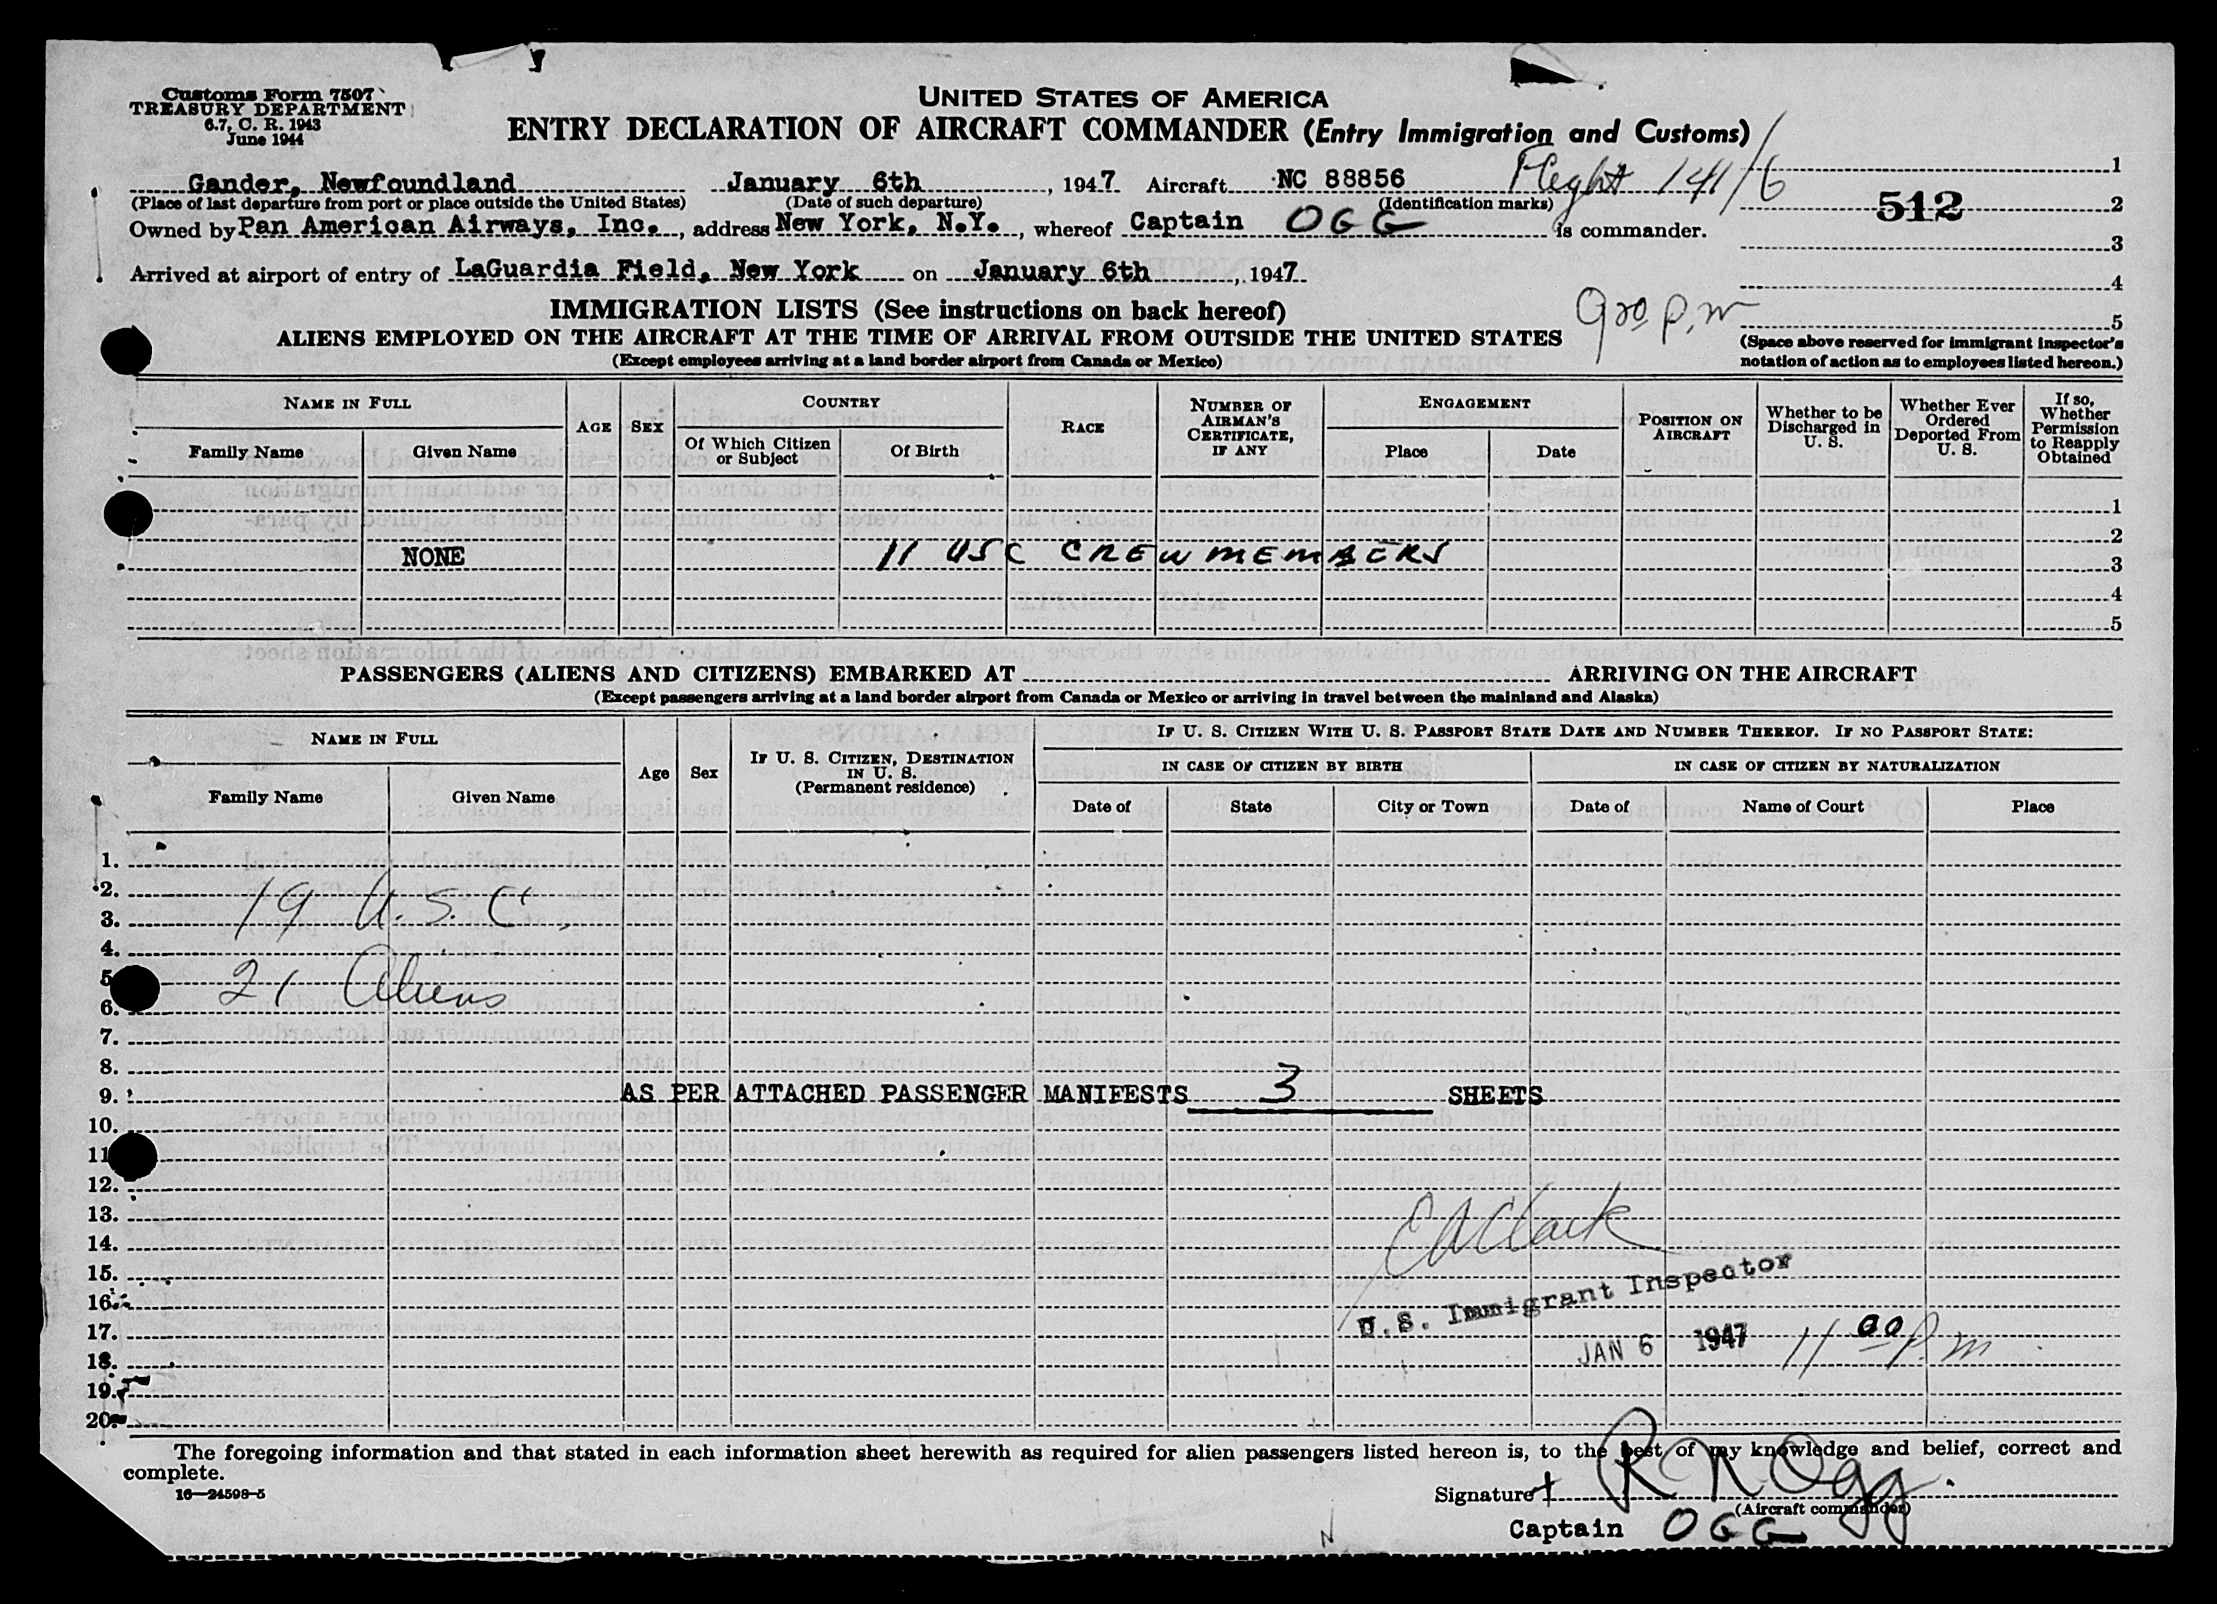 Customs Form 7507
TREASURY DEPARTMENT
6.7, C. R. 1943
June 1944
UNITED STATES OF AMERICA
ENTRY DECLARATION OF AIRCRAFT COMMANDER (Entry Immigration and Customs)
Gander, Newfoundland January 6th, 1947 Aircraft NC 88856 Flight 141/6
(Place of last departure from port or place outside the United States) (Date of such departure) (Identification marks)
Owned by Pan American Airways, Inc., address New York, N.Y., whereof Captain OGG is commander.
Arrived at airport of entry of LaGuardia Field, New York on January 6th, 1947
1
512 2
3
4
5
(Space above reserved for immigrant inspector's notation of action as to employees listed hereon.)
IMMIGRATION LISTS (See instructions on back hereof)
ALIENS EMPLOYED ON THE AIRCRAFT AT THE TIME OF ARRIVAL FROM OUTSIDE THE UNITED STATES
(Except employees arriving at a land border airport from Canada or Mexico)
P.M
NAME IN FULL
Family Name Given Name
AGE SEX
COUNTRY
Of Which Citizen or Subject Of Birth
RACE
NUMBER OF AIRMAN'S CERTIFICATE, IF ANY
ENGAGEMENT
Place Date
POSITION ON AIRCRAFT
Whether to be Discharged in U. S.
Whether Ever Ordered Deported From U. S.
If so, Whether Permission to Reapply Obtained
1
2
NONE 11 USC CREW MEMBERS 3
4
5
PASSENGERS (ALIENS AND CITIZENS) EMBARKED AT ARRIVING ON THE AIRCRAFT
(Except passengers arriving at a land border airport from Canada or Mexico or arriving in travel between the mainland and Alaska)
NAME IN FULL
Family Name Given Name
Age Sex
IF U. S. CITIZEN, DESTINATION IN U. S.
(Permanent residence)
IF U. S. CITIZEN WITH U. S. PASSPORT STATE DATE AND NUMBER THEREOF. IF NO PASSPORT STATE:
IN CASE OF CITIZEN BY BIRTH IN CASE OF CITIZEN BY NATURALIZATION
Date of State City or Town Date of Name of Court Place
1.
2.
3. 19 U.S.C.
4.
5. 21 Aliens
6.
7.
8.
9. AS PER ATTACHED PASSENGER MANIFESTS 3 SHEETS
10.
11.
12.
13.
14. Clark
15. U.S. Immigrant Inspector
16.
17. JAN 6 1947 11 00 P.m
18.
19.
20.
The foregoing information and that stated in each information sheet herewith as required for alien passengers listed hereon is, to the best of my knowledge and belief, correct and
complete.
16—24598-5
Signature R N Ogg
(Aircraft commander)
Captain OGG